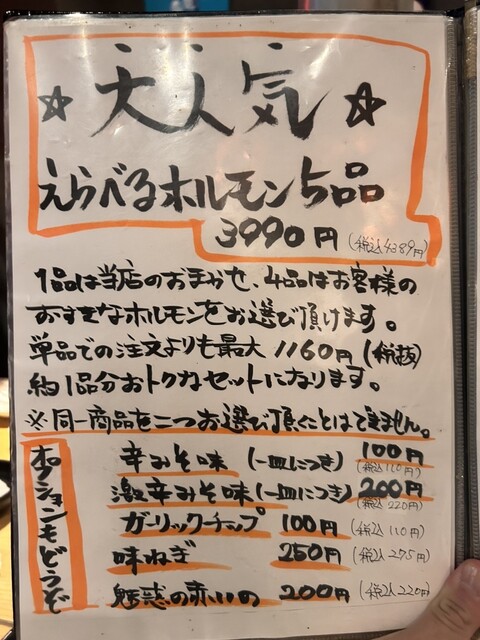 ☆大人気☆
えらべるホルモン5品
3990円(税込4389円)
1品は当店のおまかせ、4品はお客様の
おすきなホルモンをお選び頂けます。
単品での注文よりも最大1160円(税抜)
約1品分おトクなセットになります。
※同一商品を二つお選び頂くことはできません。
オプションもどうぞ
辛みそ味(一皿につき)100円(税込110円)
激辛みそ味(一皿につき)200円(税込220円)
ガーリックチップ 100円(税込110円)
味ねぎ 250円(税込275円)
魅惑の赤いの 200円(税込220円)